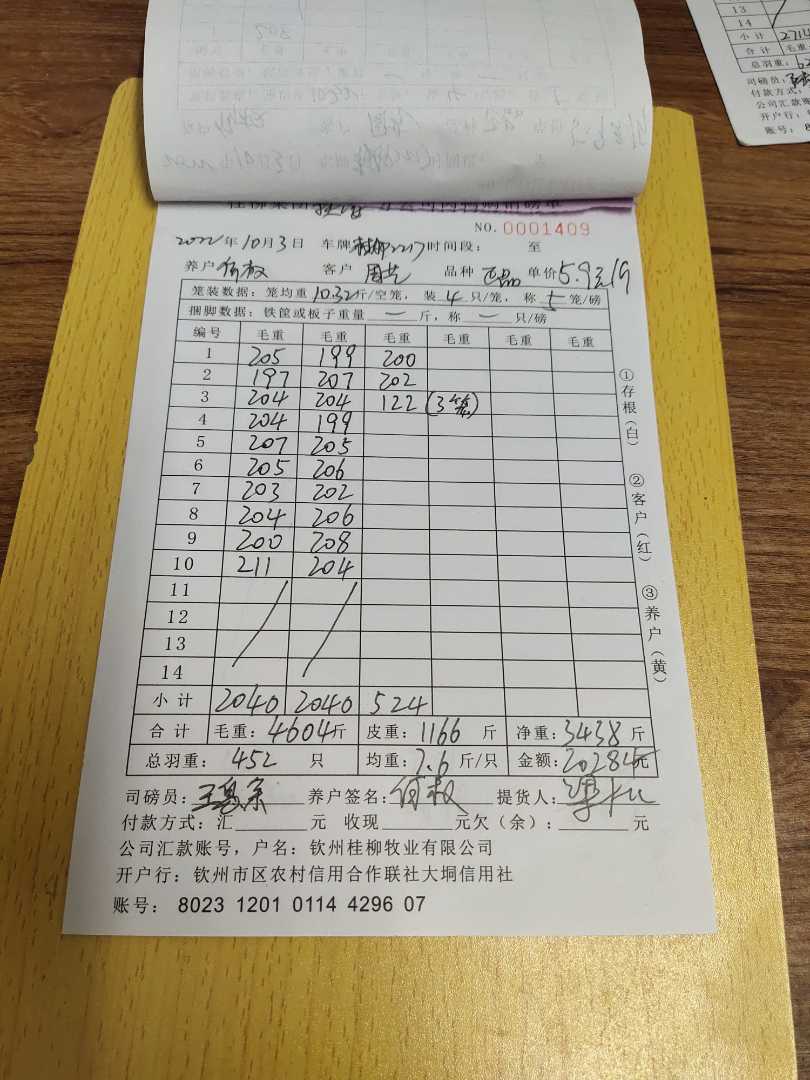 13
14
小 计 2714
合 计 毛重:
总羽重:
司磅员:
付款方式:
公司汇款账
开户行:
账号: 8
NO. 0001409
2022年10月3日 车牌 2217 时间段: 至
养户 何权 客户 周艺 品种 正品 单价5.9元/斤
笼装数据: 笼均重10.32斤/空笼, 装4只/笼, 称5笼/磅
捆脚数据: 铁筐或板子重量 一 斤, 称 一 只/磅
编号 毛重 毛重 毛重 毛重 毛重 毛重
1 205 199 200
2 197 207 202
3 204 204 122 (3笼)
4 204 199
5 207 205
6 205 206
7 203 202
8 204 206
9 200 208
10 211 204
11
12
13
14
小 计 2040 2040 524
合 计 毛重: 4604斤 皮重: 1166 斤 净重: 3438 斤
总羽重: 452 只 均重: 7.6 斤/只 金额: 20284元
司磅员: 养户签名: 何权 提货人:
付款方式: 汇 元 收现 元欠(余): 元
公司汇款账号, 户名: 钦州桂柳牧业有限公司
开户行: 钦州市区农村信用合作联社大垌信用社
账号: 8023 1201 0114 4296 07
①存根(白)
②客户(红)
③养户(黄)